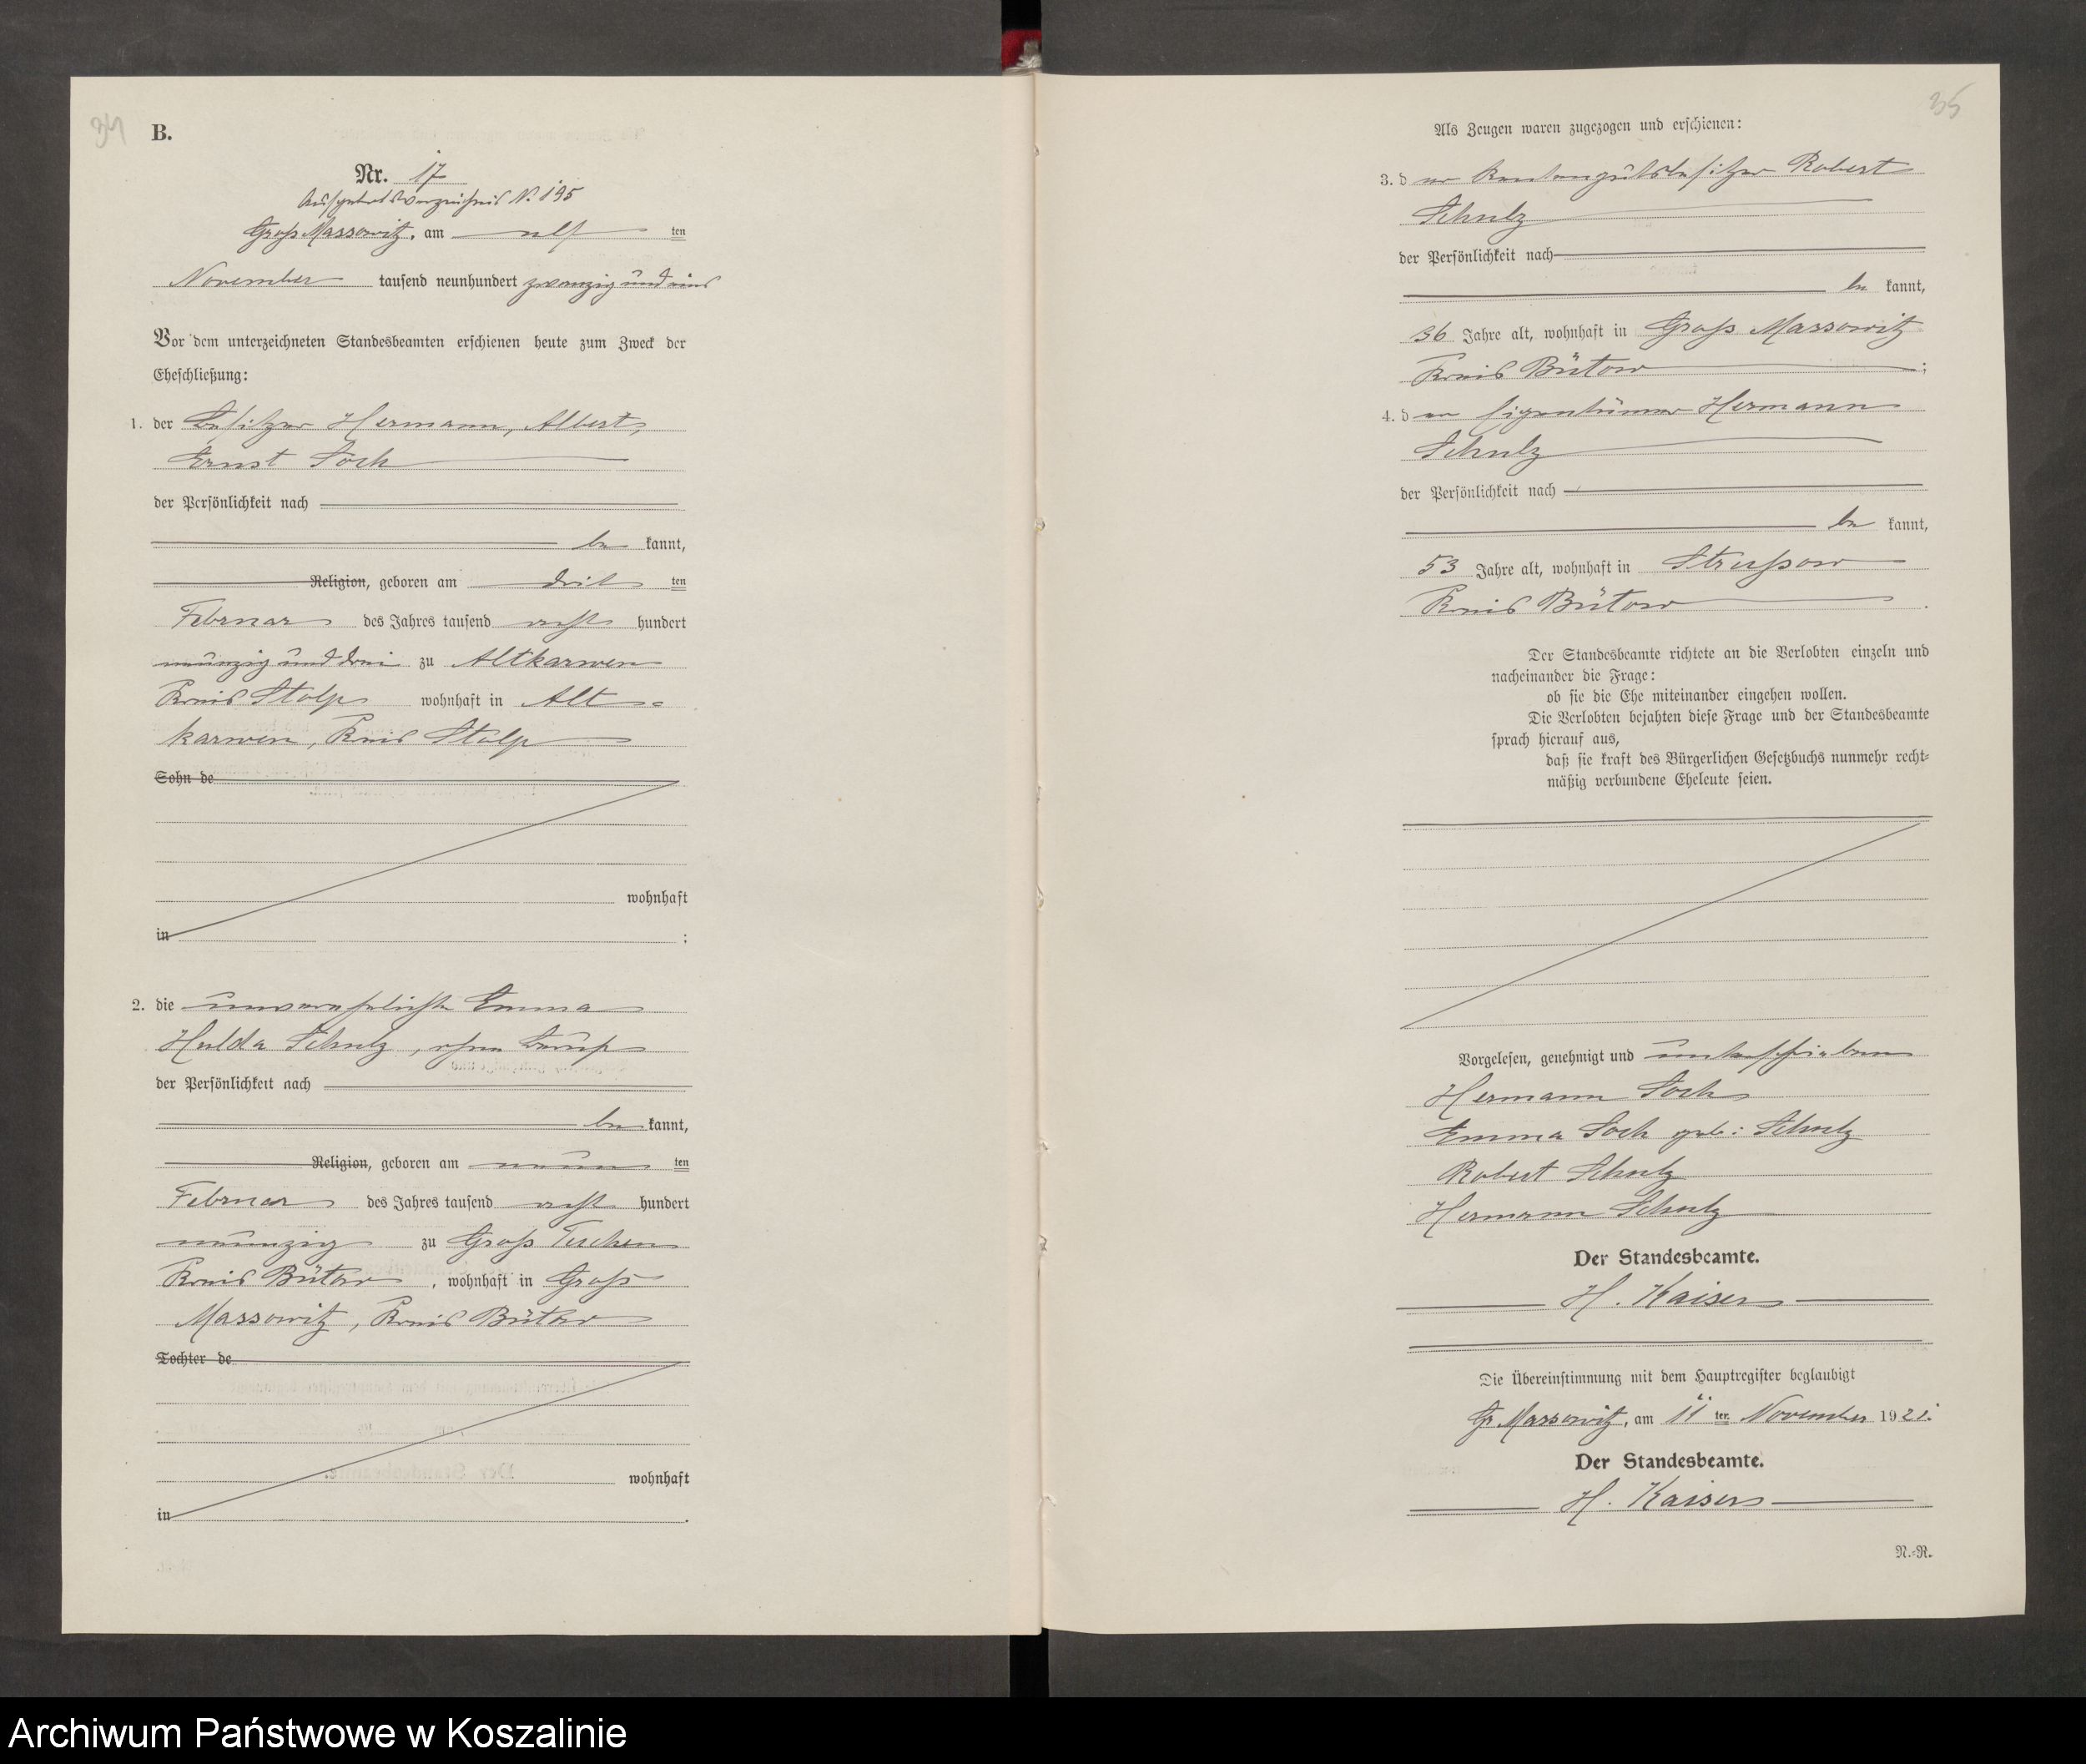 34
B.
Nr. 17
Aufgebotsverzeichnis N. 195
Groß Massowitz, am elf ten
November tausend neunhundert zwanzig und eins
Vor dem unterzeichneten Standesbeamten erschienen heute zum Zweck der
Eheschließung:
1. der Besitzer Hermann, Albert,
Ernst Sock
der Persönlichkeit nach
be kannt,
Religion, geboren am drit ten
Februar des Jahres tausend acht hundert
neunzig und drei zu Altkarwen
Kreis Stolp wohnhaft in Alt=
karwen, Kreis Stolp
Sohn de
wohnhaft
in ;
2. die unverehelichte Emma
Hulda Schulz, ohne Beruf
der Persönlichkeit nach
be kannt,
Religion, geboren am neun ten
Februar des Jahres tausend acht hundert
neunzig zu Groß Tuchen
Kreis Bütow, wohnhaft in Groß
Massowitz, Kreis Bütow
Tochter de
wohnhaft
in .
35
Als Zeugen waren zugezogen und erschienen:
3. d er Rentengutsbesitzer Robert
Schulz
der Persönlichkeit nach
be kannt,
36 Jahre alt, wohnhaft in Groß Massowitz
Kreis Bütow ;
4. d er Eigentümer Hermann
Schulz
der Persönlichkeit nach
be kannt,
53 Jahre alt, wohnhaft in Strussow
Kreis Bütow .
Der Standesbeamte richtete an die Verlobten einzeln und
nacheinander die Frage:
ob sie die Ehe miteinander eingehen wollen.
Die Verlobten bejahten diese Frage und der Standesbeamte
sprach hierauf aus,
daß sie kraft des Bürgerlichen Gesetzbuchs nunmehr recht=
mäßig verbundene Eheleute seien.
Vorgelesen, genehmigt und unterschrieben
Hermann Sock
Emma Sock geb: Schulz
Robert Schulz
Hermann Schulz
Der Standesbeamte.
H. Kaiser
Die Übereinstimmung mit dem Hauptregister beglaubigt
Gr. Massowitz, am 11 ten November 1921.
Der Standesbeamte.
H. Kaiser
N.=R.
Archiwum Państwowe w Koszalinie